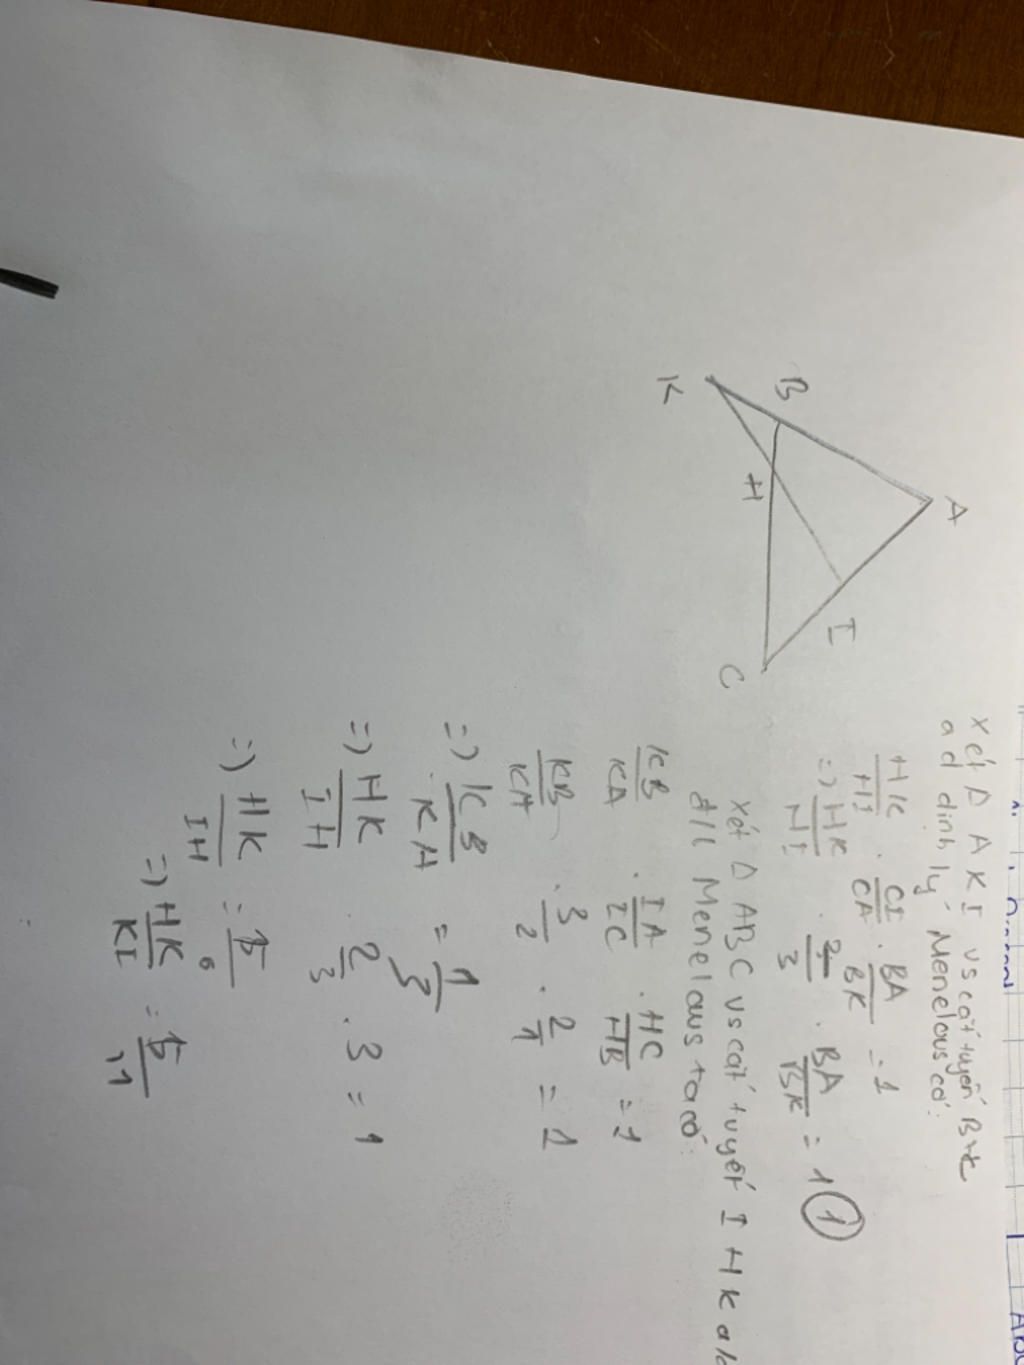 Xét Δ AKI vs cát tuyến BHC
ad định lý Menelaus có:
HK/HI . CI/CA . BA/BK = 1
=> HK/HI . 2/3 . BA/BK = 1 (1)
xét Δ ABC vs cát tuyến IHK
đ/l Menelaus ta có:
KB/KA . IA/IC . HC/HB = 1
KB/KA . 3/2 . 2/1 = 1
=> KB/KA = 1/3
=> HK/IH . 2/3 . 3 = 1
=> HK/IH = 5/6
=> HK/KI = 5/11
A
B
K
H
I
C